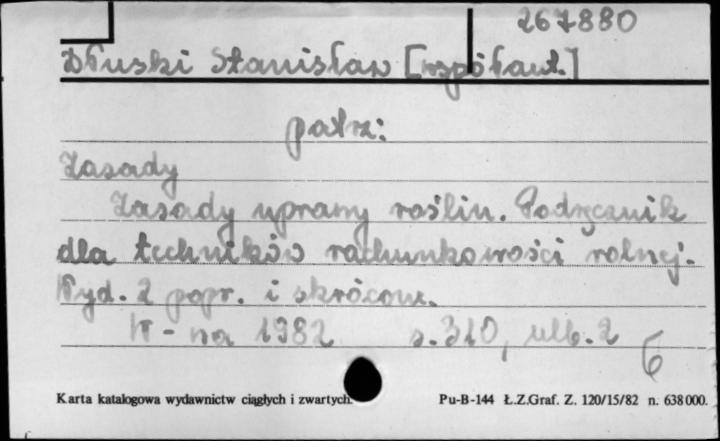 267880
Dłuski Stanisław [współaut.]
patrz:
Zasady
Zasady uprawy roślin. Podręcznik
dla techników rachunkowości rolnej.
Wyd. 2 popr. i skrócone.
W-wa 1982 s. 310, nlb. 2
6
Karta katalogowa wydawnictw ciągłych i zwartych.
Pu-B-144 Ł.Z.Graf. Z. 120/15/82 n. 638000.